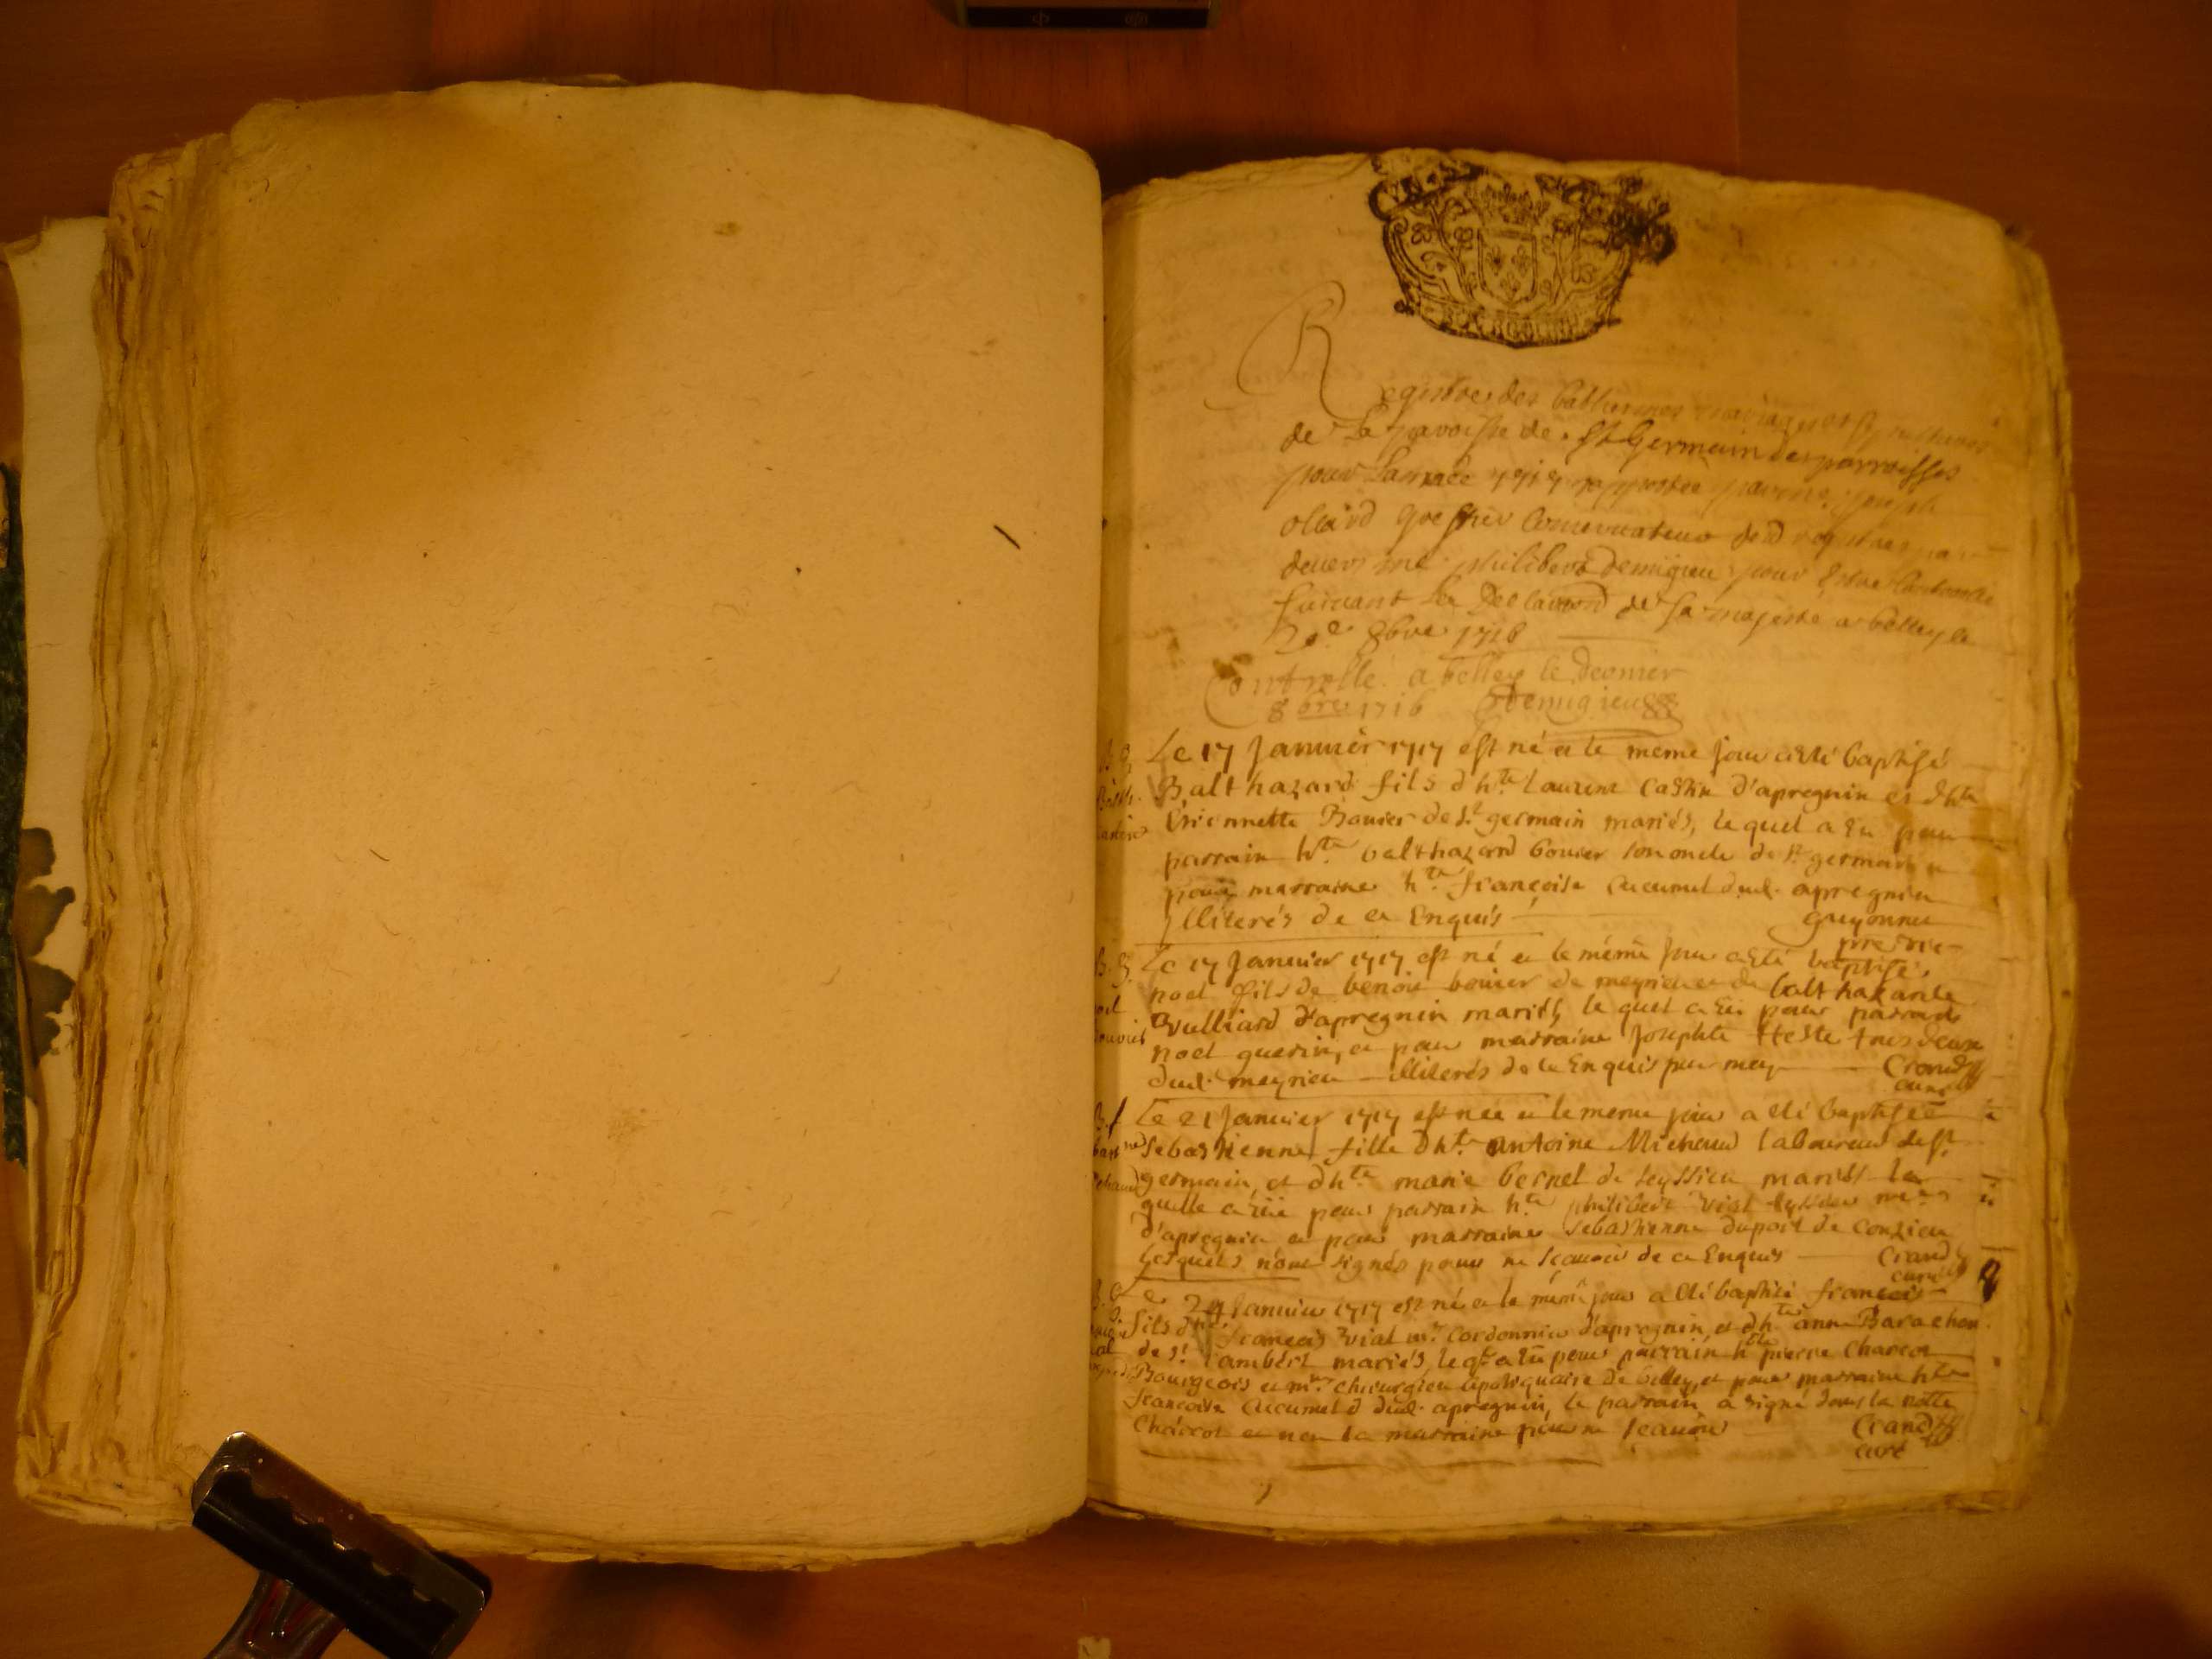 Registre des batthesmes mariages et sepultures
de La paroisse de St Germain des parroisses
pour Lannée 1717 rapportée par me joseph
ollard greffier Conservateur desd registres par
devers me philibert demigieu pour Estre
suivant La Declaraon de sa majesté a belley le
8bre 1716
Controllé a belley le dernier
8bre 1716 Demigieu
Le 17 Janvier 1717 est né et le meme jour a esté baptisé
Balthazard fils d'hte laurent Castin d'apregnin et d'hte
Bouvier de st germain mariés, le quel a eu pour
parrain hte balthazard bouvier son oncle de st germain et
pour marraine hte françoise cucumet dud. apregnin
Jlliterés de ce Enquis
guyonnet
B. g. Le 17 Janvier 1717 est né et le même jour a esté baptisé
noel fils de benoit bouvier de meyrieu et de balthazarde
Vulliard d'apregnin mariés, le quel a eu pour parrain
noel guerin, et pour marraine Josephte teste tous deux
dud. meyrieu illiterés de ce Enquis par moy Crand
curé
B. f Le 21 Janvier 1717 est née et le meme jour a été baptisée
Sebastienne fille d'hte antoine Michaud laboureur de st
germain, et d'hte marie bernel de seyssieu mariés la
quelle a eüe pour parrain hte philibert vial
d'apregnin et pour marraine sebastienne duport de Conzieu
Lesquels n'ont signés pour ne sçavoir de ce Enquis Crand
curé
Le 24 Janvier 1717 est né et le même jour a été baptisé françois
fils d'hte françois vial me Cordonnier d'apregnin, et d'hte anne Barachon
de st Cambert mariés, le qel a eu pour parrain hble pierre Charcot
Bourgeois et me chirurgien apotiquaire de belley, et pour marraine hte
françoise Cucumet dud. apregnin, le parrain a signé dans la notte
Charcot et non la marraine pour ne sçavoir Crand
curé